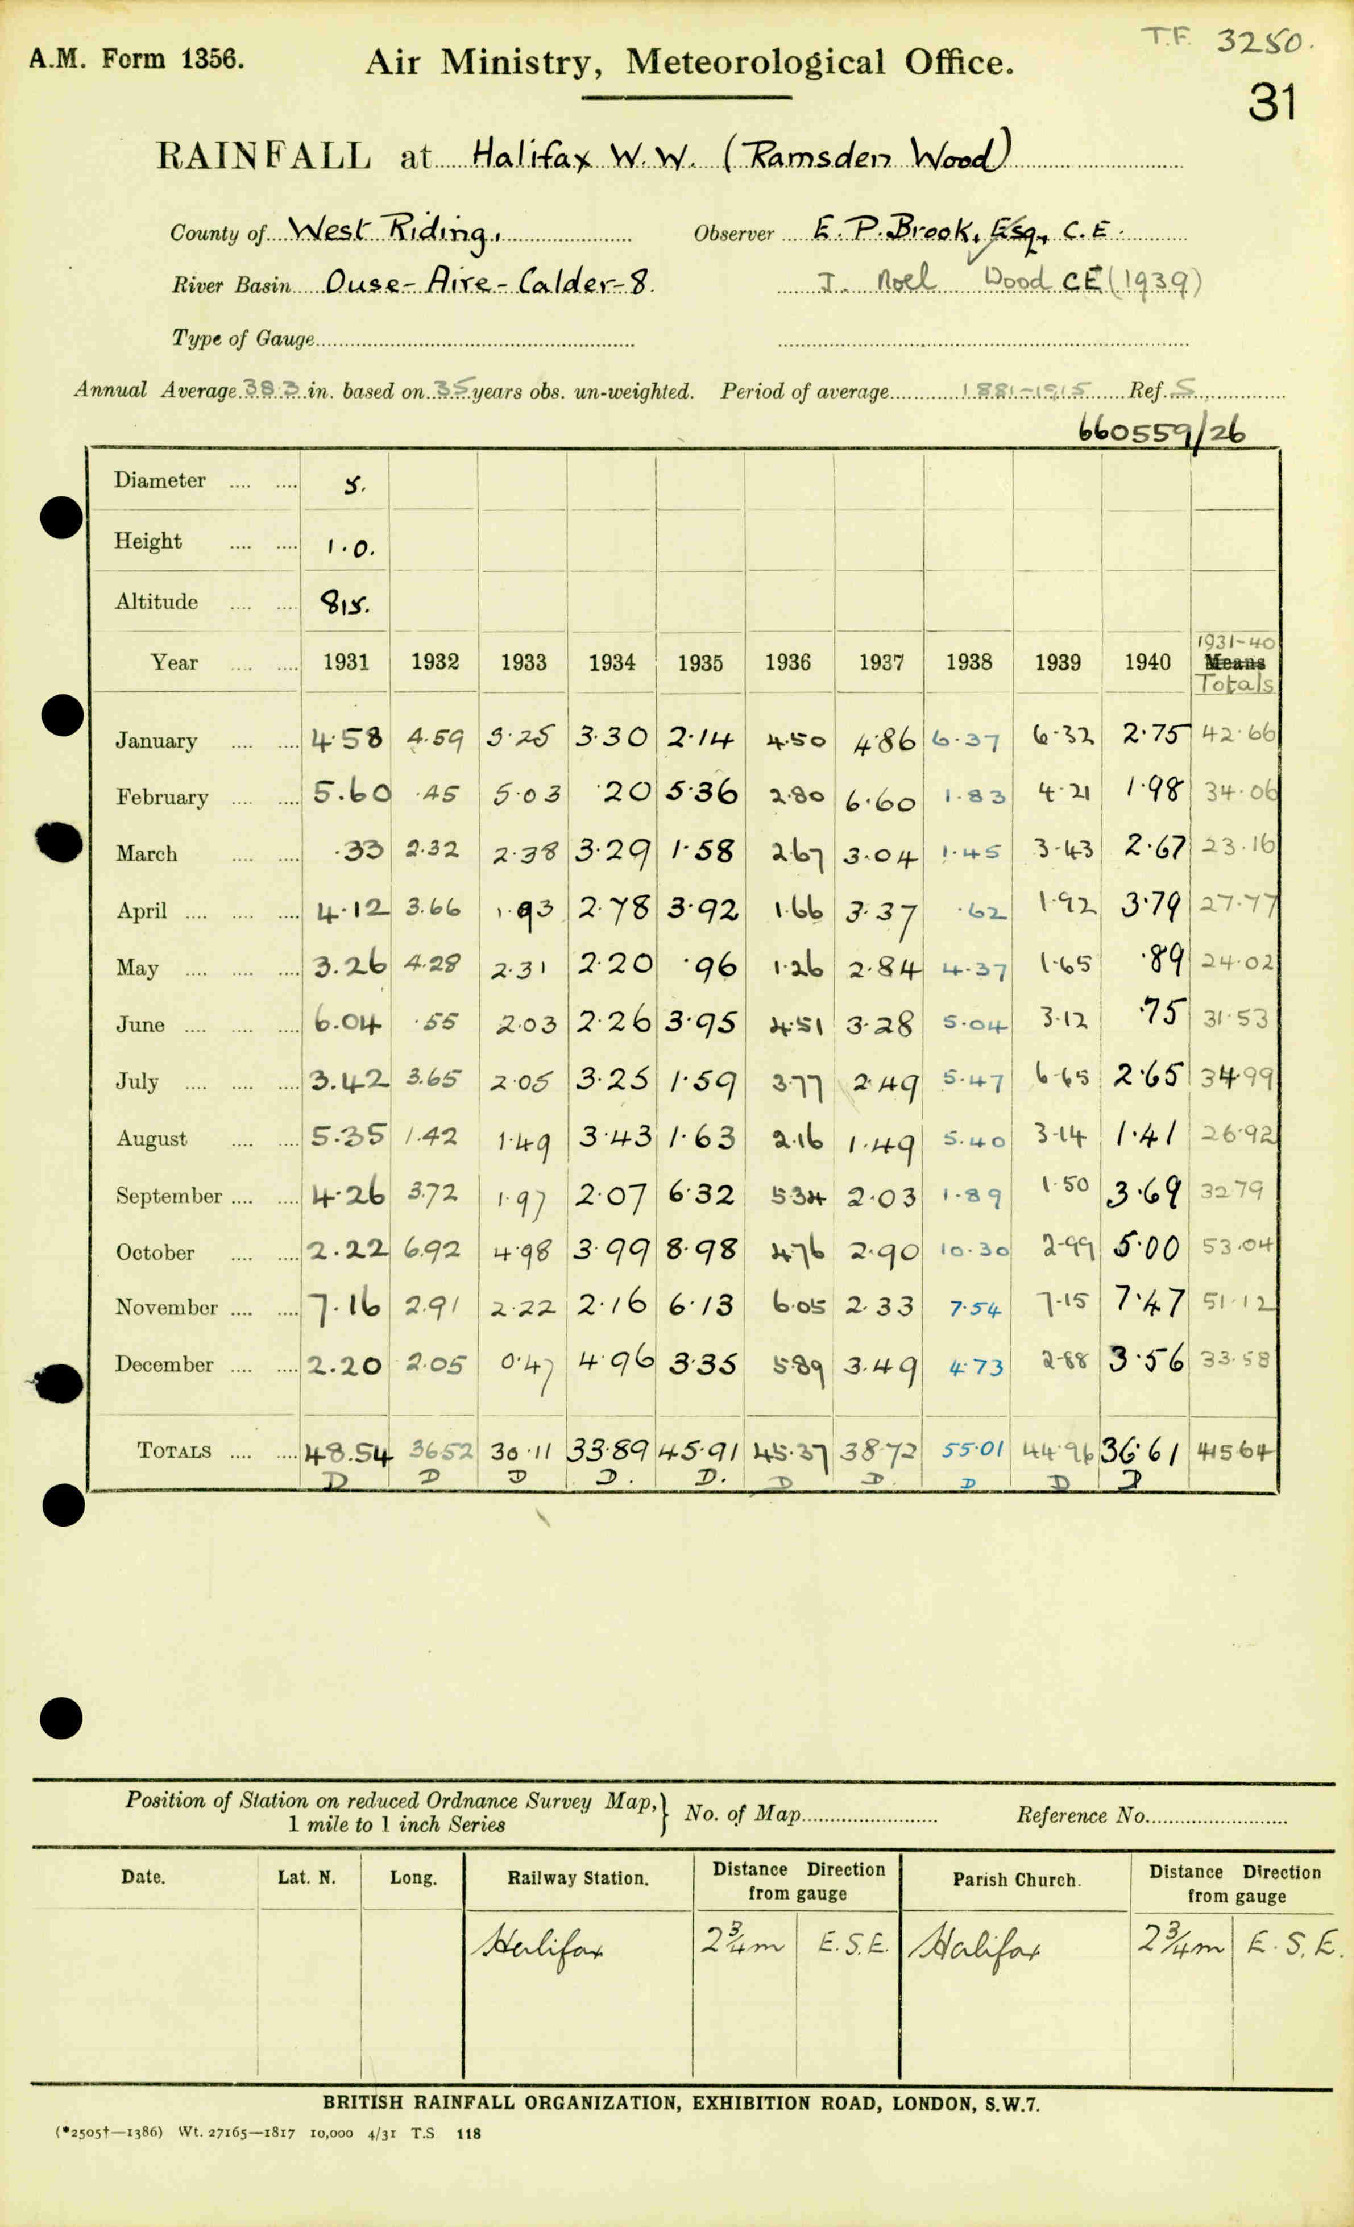 T.F. 3250.
A.M. Form 1356. Air Ministry, Meteorological Office.
31
RAINFALL at Halifax W.W. (Ramsden Wood)
County of West Riding, Observer E. P. Brook, Esq, C.E.
River Basin Ouse-Aire-Calder-8. J. Noel Wood CE (1939)
Type of Gauge
Annual Average 38.3 in. based on 35 years obs. un-weighted. Period of average 1881-1915 Ref. S
660559/26
Diameter .... .... 5.
Height .... .... 1.0.
Altitude .... .... 815.
1931-40
Year .... .... 1931 1932 1933 1934 1935 1936 1937 1938 1939 1940 Means
Totals
January .... .... 4.58 4.59 3.25 3.30 2.14 4.50 4.86 6.37 6.32 2.75 42.66
February .... .... 5.60 .45 5.03 .20 5.36 2.80 6.60 1.83 4.21 1.98 34.06
March .... .... .33 2.32 2.38 3.29 1.58 2.67 3.04 1.45 3.43 2.67 23.16
April .... .... .... 4.12 3.66 1.93 2.78 3.92 1.66 3.37 .62 1.92 3.79 27.77
May .... .... .... 3.26 4.28 2.31 2.20 .96 1.26 2.84 4.37 1.65 .89 24.02
June .... .... .... 6.04 .55 2.03 2.26 3.95 4.51 3.28 5.04 3.12 .75 31.53
July .... .... .... 3.42 3.65 2.05 3.25 1.59 3.77 2.49 5.47 6.65 2.65 34.99
August .... .... 5.35 1.42 1.49 3.43 1.63 2.16 1.49 5.40 3.14 1.41 26.92
September .... .... 4.26 3.72 1.97 2.07 6.32 5.34 2.03 1.89 1.50 3.69 32.79
October .... .... 2.22 6.92 4.98 3.99 8.98 4.76 2.90 10.30 2.99 5.00 53.04
November .... .... 7.16 2.91 2.22 2.16 6.13 6.05 2.33 7.54 7.15 7.47 51.12
December .... .... 2.20 2.05 0.47 4.96 3.35 5.89 3.49 4.73 2.88 3.56 33.58
TOTALS .... .... 48.54 36.52 30.11 33.89 45.91 45.37 38.72 55.01 44.96 36.61 415.64
D D D D. D. D D. D D D
Position of Station on reduced Ordnance Survey Map, } No. of Map Reference No.
1 mile to 1 inch Series
Date. Lat. N. Long. Railway Station. Distance Direction from gauge Parish Church. Distance Direction from gauge
Halifax 2¾m E.S.E. Halifax 2¾m E.S.E.
BRITISH RAINFALL ORGANIZATION, EXHIBITION ROAD, LONDON, S.W.7.
(*2505†—1386) Wt. 27165—1817 10,000 4/31 T.S 118